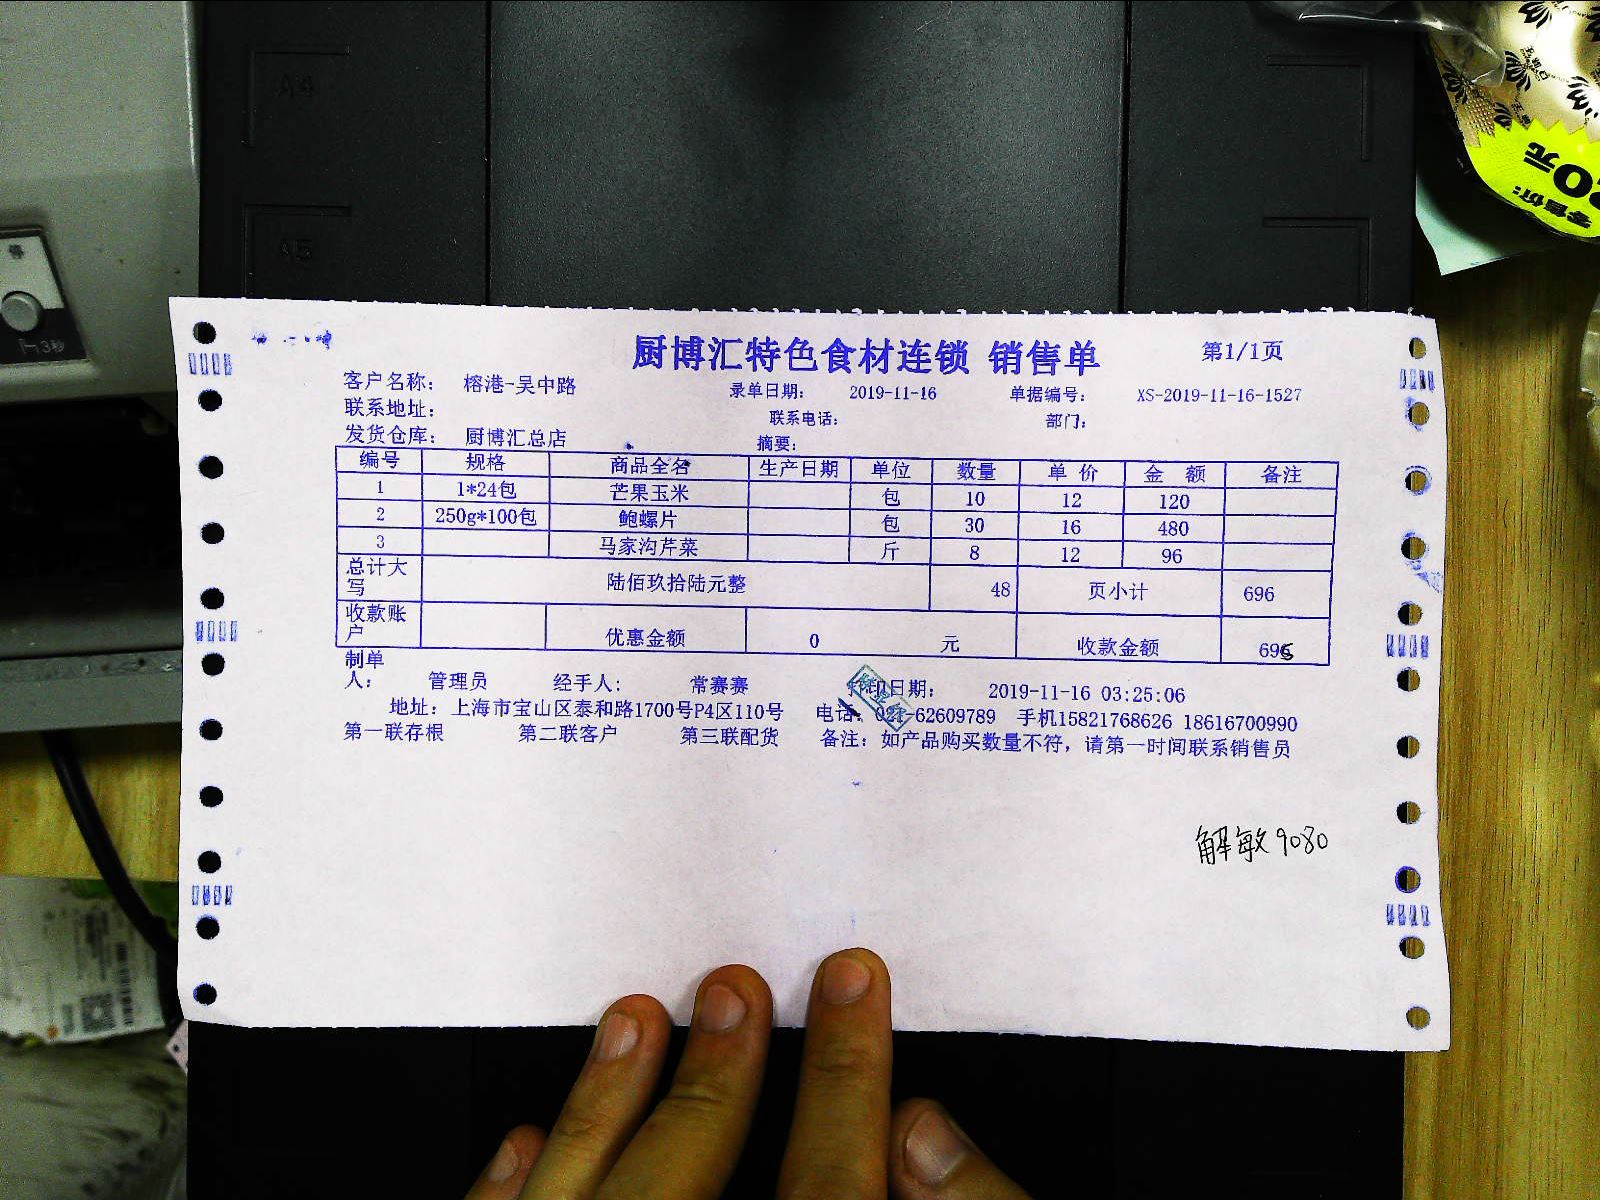 厨博汇特色食材连锁 销售单 第1/1页
客户名称: 榕港-吴中路 录单日期: 2019-11-16 单据编号: XS-2019-11-16-1527
联系地址: 联系电话: 部门:
发货仓库: 厨博汇总店 摘要:
编号 规格 商品全名 生产日期 单位 数量 单 价 金 额 备注
1 1*24包 芒果玉米 包 10 12 120
2 250g*100包 鲍螺片 包 30 16 480
3 马家沟芹菜 斤 8 12 96
总计大写 陆佰玖拾陆元整 48 页小计 696
收款账户 优惠金额 0 元 收款金额 696
制单人: 管理员 经手人: 常赛赛 打印日期: 2019-11-16 03:25:06
地址: 上海市宝山区泰和路1700号P4区110号 电话: 021-62609789 手机15821768626 18616700990
第一联存根 第二联客户 第三联配货 备注: 如产品购买数量不符, 请第一时间联系销售员
解敏9080
A4
A5
零售价:
元